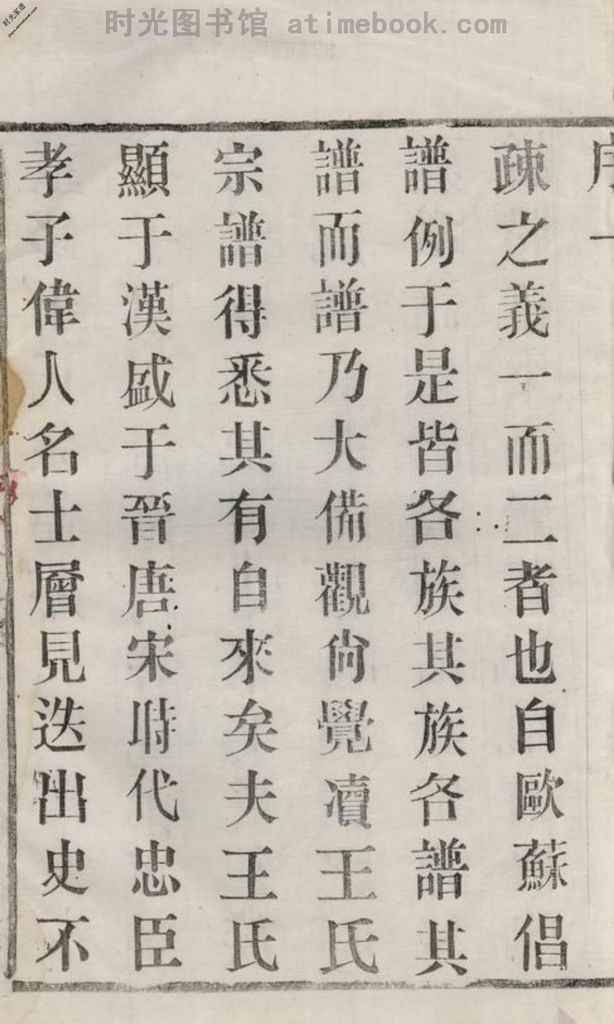 时光图书馆 atimebook.com
疎之義一而二者也自歐蘇倡
譜例于是皆各族其族各譜其
譜而譜乃大備觀尙覺凟王氏
宗譜得悉其有自來矣夫王氏
顯于漢盛于晉唐宋時代忠臣
孝子偉人名士層見迭出史不